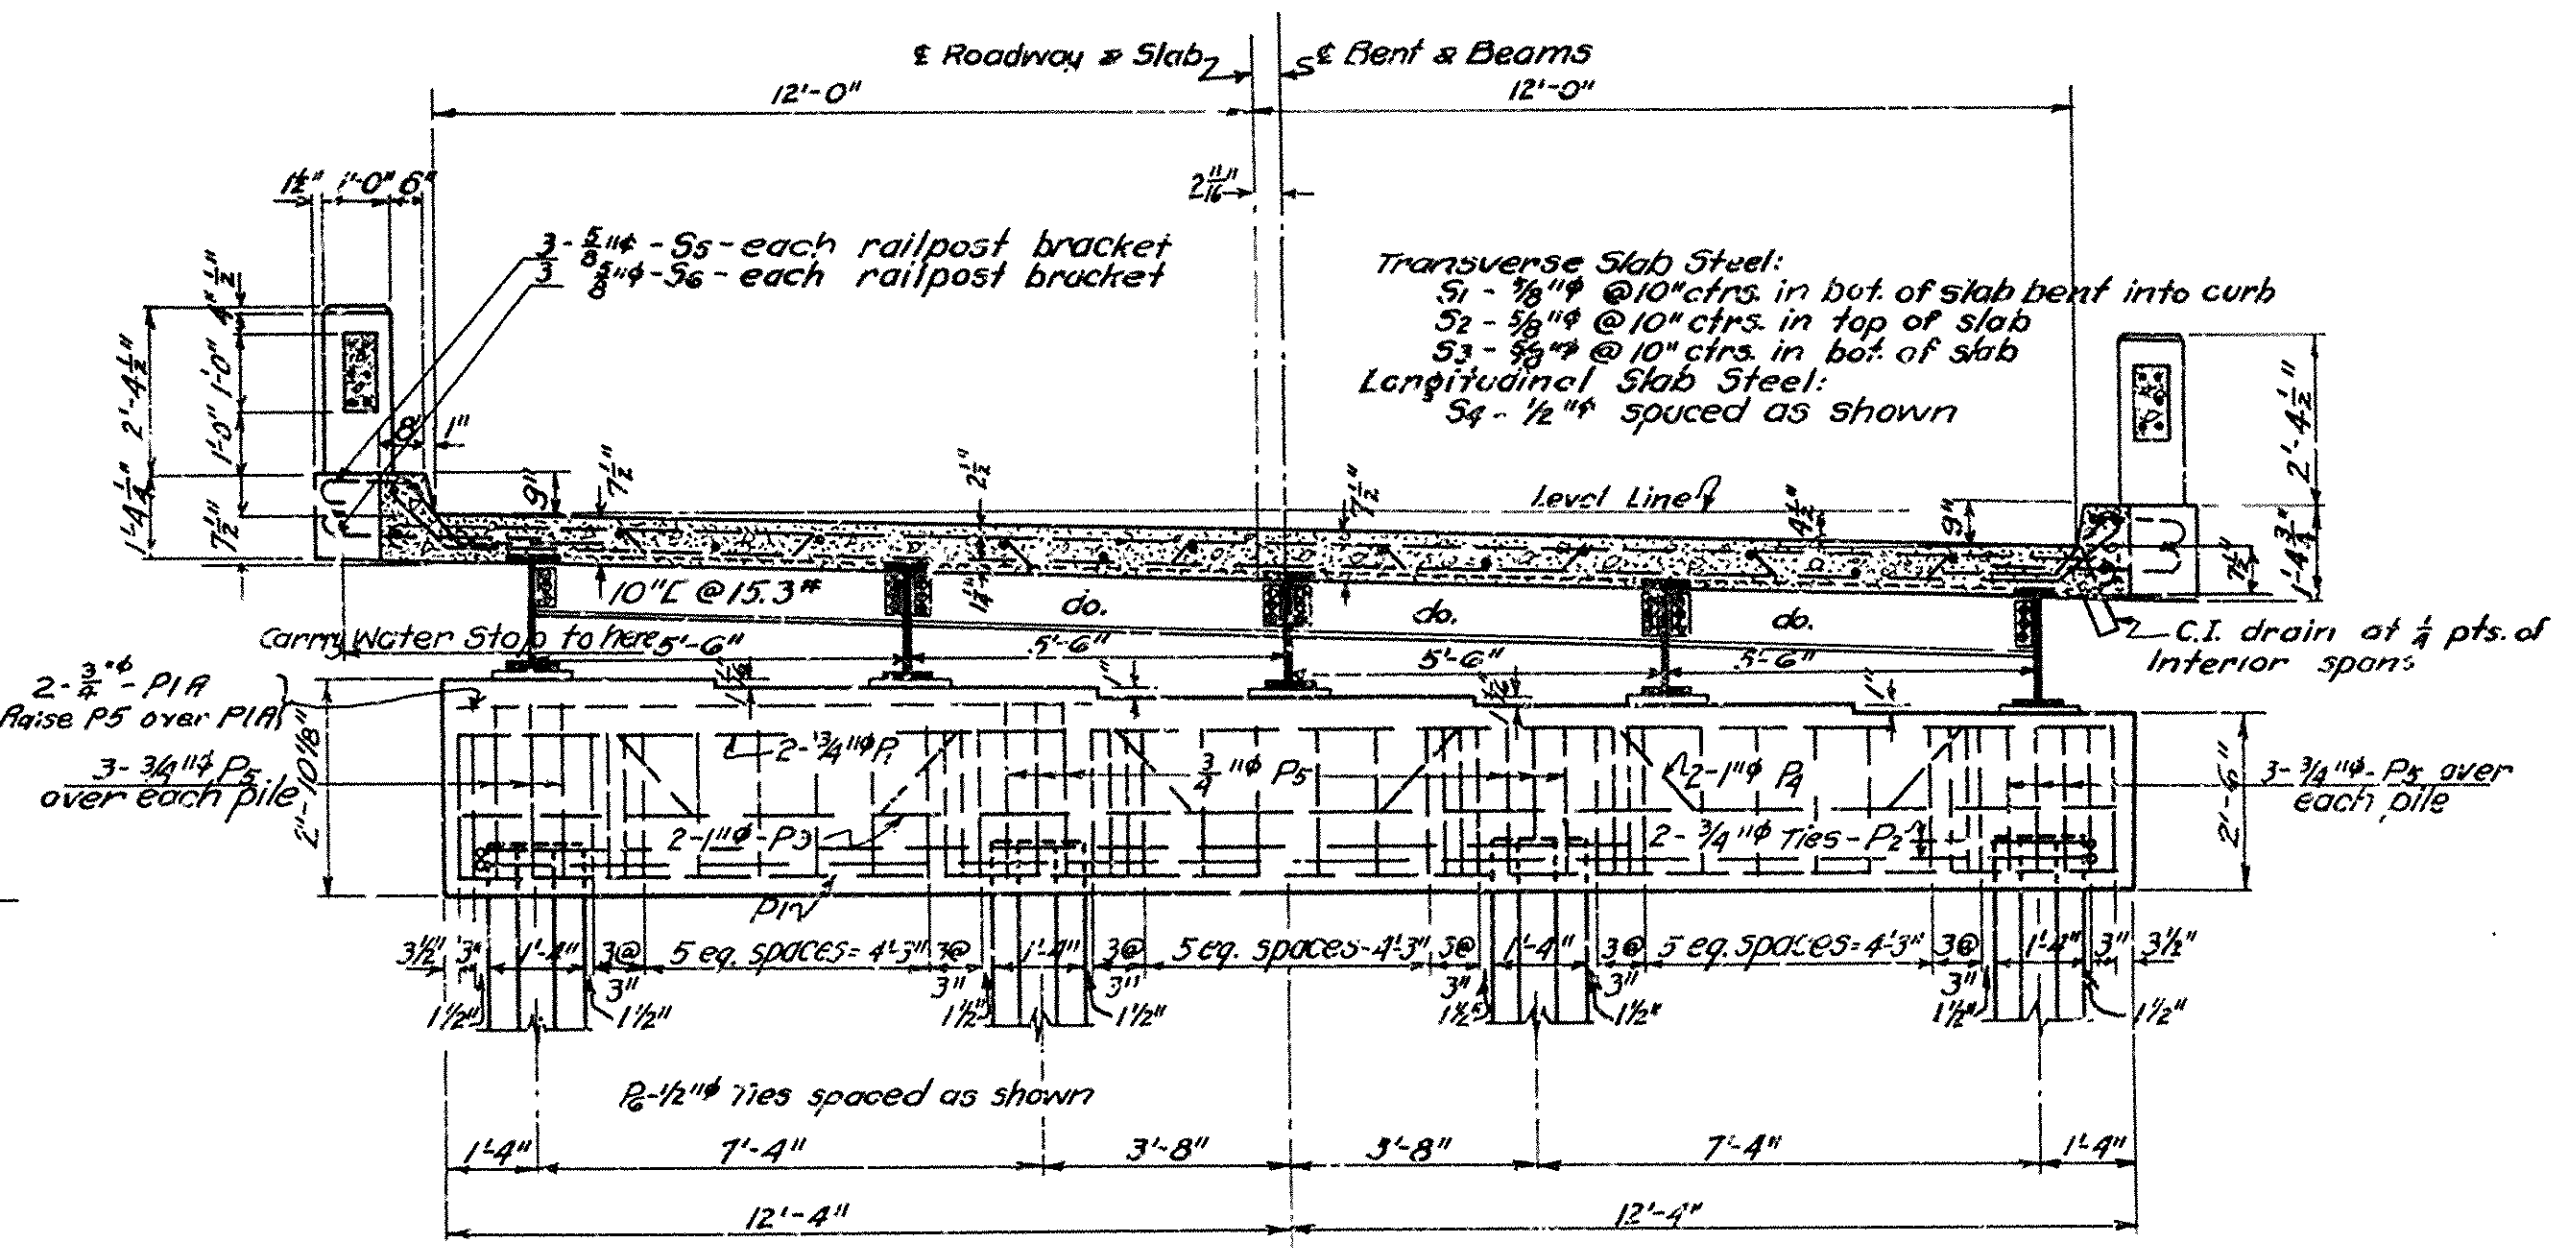 ℄ Roadway & Slab
℄ Bent & Beams
12'-0"
12'-0"
1½" 1'-0" 6"
2 11/16"
3 - 5/8"ϕ - S5 - each railpost bracket
3 5/8"ϕ - S6 - each railpost bracket
Transverse Slab Steel:
S1 - 5/8"ϕ @ 10" ctrs. in bot. of slab bent into curb
S2 - 5/8"ϕ @ 10" ctrs. in top of slab
S3 - 5/8"ϕ @ 10" ctrs. in bot. of slab
Longitudinal Slab Steel:
S4 - ½"ϕ spaced as shown
4" ½"
2'-4½"
1'-0"
1'-0"
8" 1"
2'-4½"
1'-4¼"
7½"
9"
7½"
2½"
7½"
Level Line
4½"
9"
7½"
1'-4¾"
10"[ @ 15.3#
1¼"
do.
do.
do.
Carry Water Stop to here
5'-6"
5'-6"
5'-6"
5'-6"
C.I. drain at ¼ pts. of
Interior spans
1"
1"
2 - ¾"ϕ - P1A
Raise P5 over P1A
3 - ¾"ϕ P5
over each pile
2'-10⅛"
2 - ¾"ϕ P1
¾"ϕ P5
2 - 1"ϕ P4
3 - ¾"ϕ - P5 over
each pile
2'-6"
2 - 1"ϕ - P3
2 - ¾"ϕ Ties - P2
P1
3½" 3" 1'-4" 3@ 5 eq. spaces = 4'-3" 3@ 1'-4" 3@ 5 eq. spaces - 4'-3" 3@ 1'-4" 3@ 5 eq. spaces = 4'-3" 3@ 1'-4" 3" 3½"
3" 3" 3" 3" 3" 3"
1½" 1½" 1½" 1½" 1½" 1½" 1½" 1½"
P6 - 1/2"ϕ Ties spaced as shown
1'-4" 7'-4" 3'-8" 3'-8" 7'-4" 1'-4"
12'-4" 12'-4"